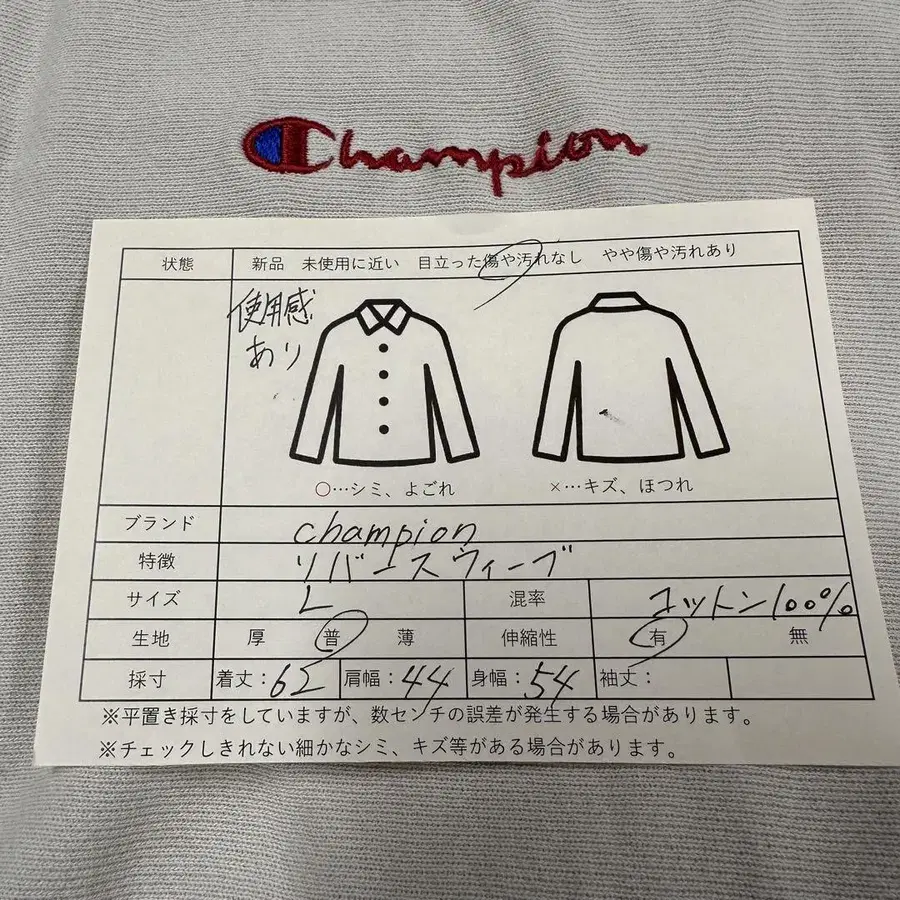 Champion
状態 新品 未使用に近い 目立った傷や汚れなし やや傷や汚れあり
使用感
あり
○…シミ、よごれ ×…キズ、ほつれ
ブランド champion
特徴 リバースウィーブ
サイズ L 混率 コットン100%
生地 厚 普 薄 伸縮性 有 無
採寸 着丈：62 肩幅：44 身幅：54 袖丈：
※平置き採寸をしていますが、数センチの誤差が発生する場合があります。
※チェックしきれない細かなシミ、キズ等がある場合があります。